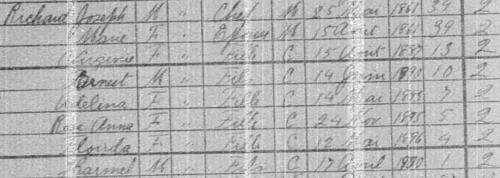 Richard Joseph M " Chef M 25 Mai 1861 39 2
Marie F " Epouse M 15 Aout 1861 39 2
Virginie F " Fille C 15 Aout 1887 13 2
Ernest M " Fils C 14 Juin 1890 10 2
Adelina F " Fille C 14 Mai 1893 7 2
Rose Anna F " Fille C 24 Nov 1895 5 2
Florida F " Fille C 12 Mai 1896 4 2
M " Fils C 17 Avril 1 2